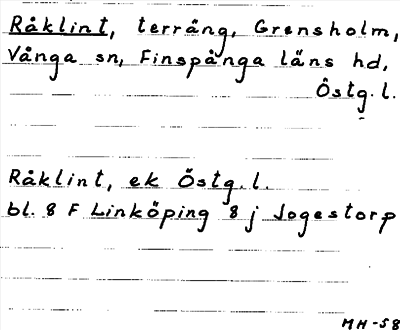 Råklint, terräng, Grensholm,
Vånga sn, Finspånga läns hd,
Östg.l.
Råklint, ek Östg.l.
bl. 8 F Linköping 8 j Jogestorp
MH-58